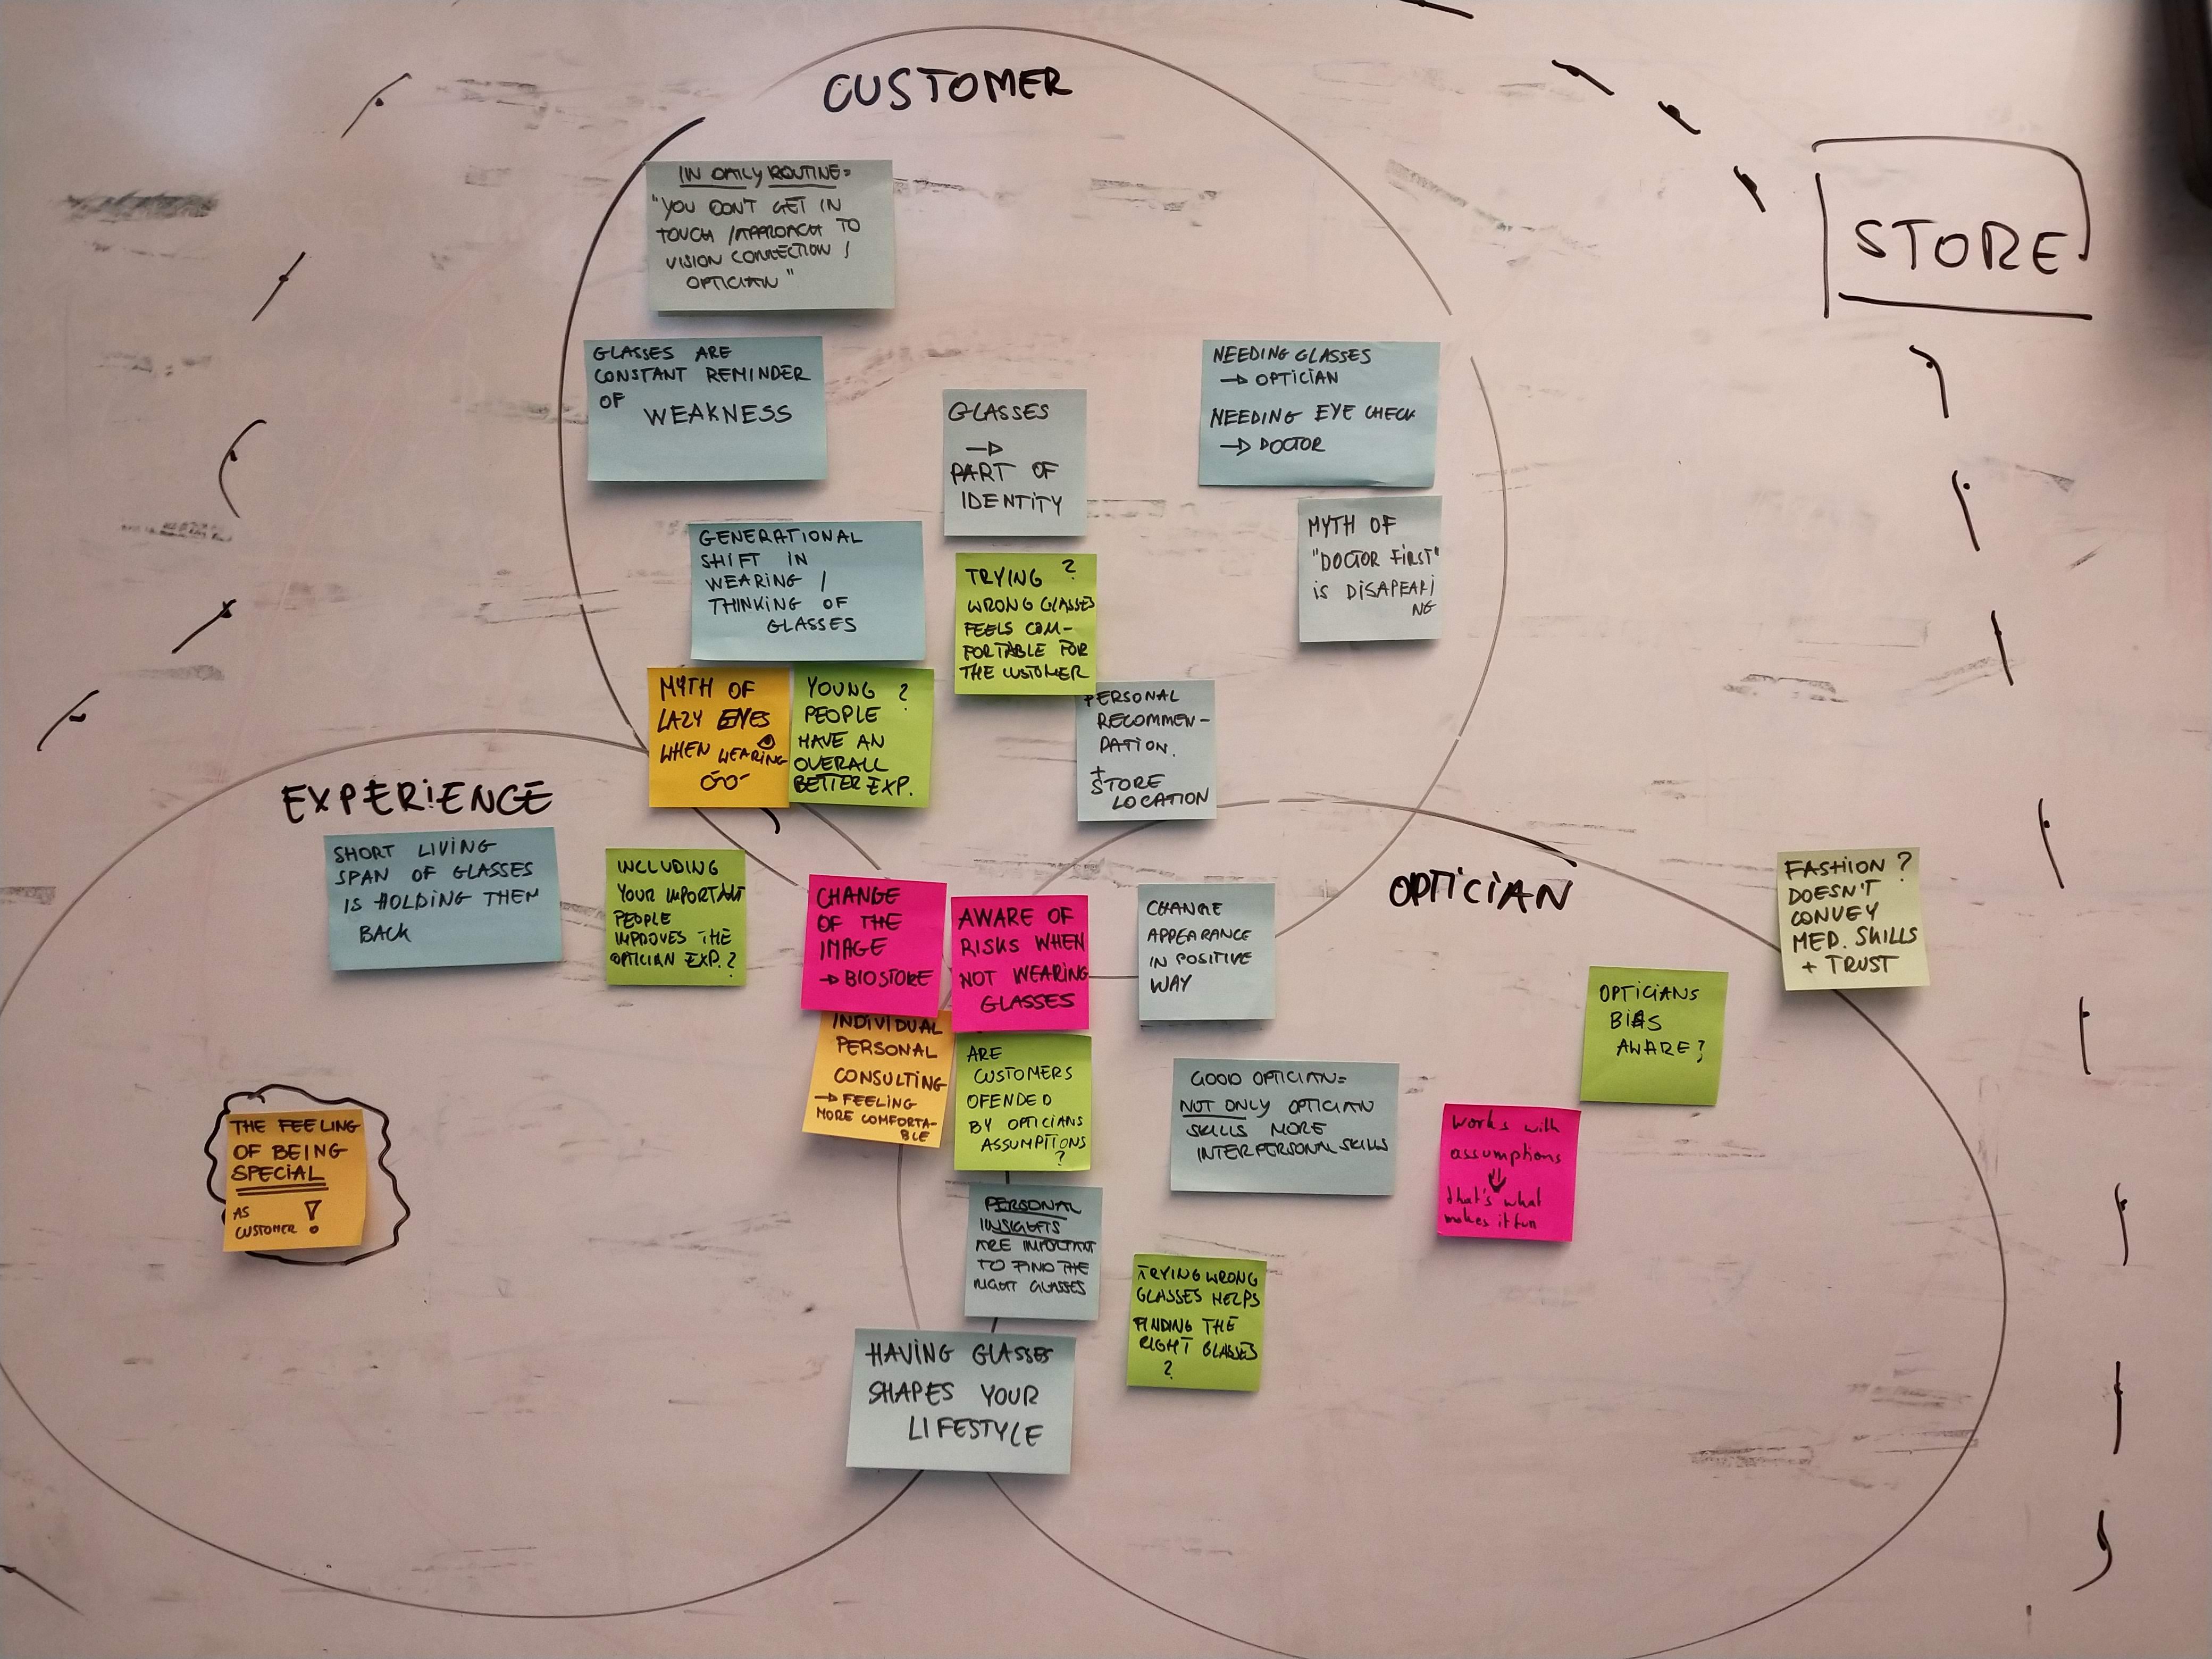 CUSTOMER
STORE
IN DAILY ROUTINE=
"YOU DON'T GET IN
TOUCH / APPROACH TO
VISION CORRECTION /
OPTICIAN"
GLASSES ARE
CONSTANT REMINDER
OF
WEAKNESS
GLASSES
→
PART OF
IDENTITY
NEEDING GLASSES
→ OPTICIAN
NEEDING EYE CHECK
→ DOCTOR
MYTH OF
"DOCTOR FIRST"
IS DISAPEARI
NG
GENERATIONAL
SHIFT IN
WEARING /
THINKING OF
GLASSES
TRYING ?
WRONG GLASSES
FEELS COM-
FORTABLE FOR
THE CUSTOMER
MYTH OF
LAZY EYES
WHEN WEARING
YOUNG ?
PEOPLE
HAVE AN
OVERALL
BETTER EXP.
PERSONAL
RECOMMEN-
DATION.
+
STORE
LOCATION
EXPERIENCE
SHORT LIVING
SPAN OF GLASSES
IS HOLDING THEM
BACK
INCLUDING
YOUR IMPORTANT
PEOPLE
IMPROVES THE
OPTICIAN EXP.?
CHANGE
OF THE
IMAGE
→ BIOSTORE
AWARE OF
RISKS WHEN
NOT WEARING
GLASSES
CHANGE
APPEARANCE
IN POSITIVE
WAY
OPTICIAN
FASHION ?
DOESN'T
CONVEY
MED. SKILLS
+ TRUST
OPTICIANS
BIAS
AWARE?
INDIVIDUAL
PERSONAL
CONSULTING
→ FEELING
MORE COMFORTA-
BLE
ARE
CUSTOMERS
OFENDED
BY OPTICIANS
ASSUMPTIONS
?
GOOD OPTICIAN=
NOT ONLY OPTICIAN
SKILLS MORE
INTERPERSONAL SKILLS
works with
assumptions
⇓
that's what
makes it fun
THE FEELING
OF BEING
SPECIAL
AS
CUSTOMER !
PERSONAL
INSIGHTS
ARE IMPORTANT
TO FIND THE
RIGHT GLASSES
TRYING WRONG
GLASSES HELPS
FINDING THE
RIGHT GLASSES
?
HAVING GLASSES
SHAPES YOUR
LIFESTYLE